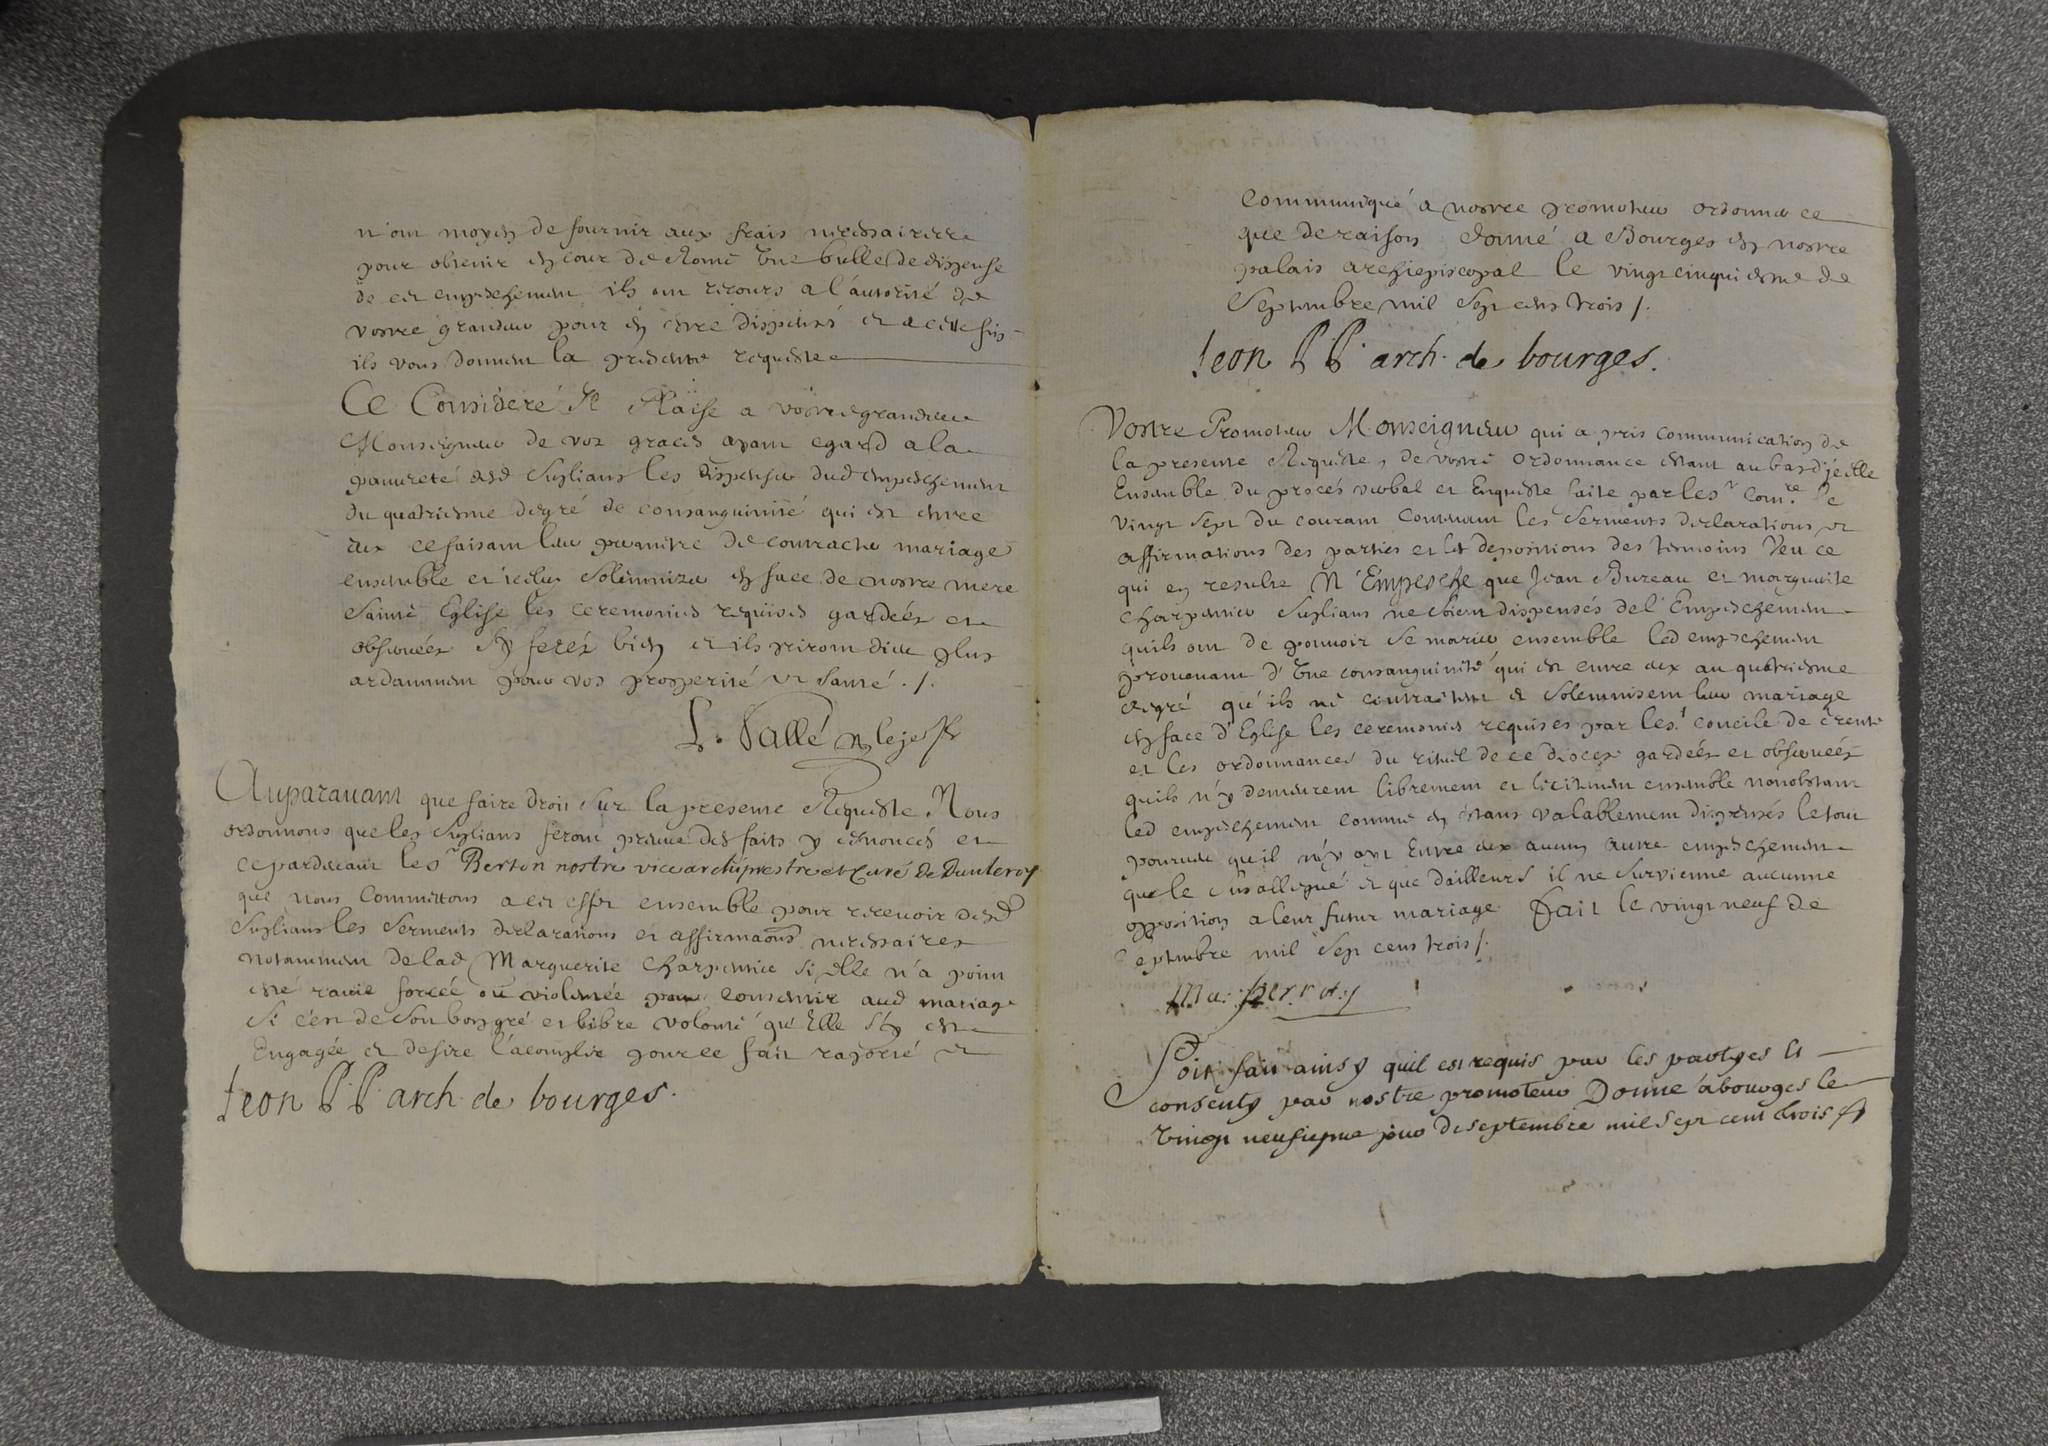 n'ont moyen de fournir aux frais necessairere
pour obtenir en cour de Rome Une bulle de dispense
de cet empeschement ils ont recours a l'autorité de
vostre grandeur pour en estre dispensés et a cette fin
ils vous donnent la presente requeste
Ce Consideré Il Plaise a vostre grandeur
Monseigneur de vos graces ayant egard a la
pauvreté desd suplians les dispenser dud empeschement
du quatriesme degré de consanguinité qui est entre
eux ce faisant leur permettre de contracter mariage
ensemble et iceluy solemnizer en face de nostre mere
Sainte Eglise les ceremonies requises gardées et
observées Sy ferez bien et ils priront dieu plus
ardamment pour vos prosperité et santé ./.
L. Vallé
Auparavant que faire droit sur la presente Requeste. Nous
ordonnons que les suplians feront preuve des faits y enoncés et
ce pardevant le sr Berton nostre vice archiprestre et Curé de Dunleroy
que nous Commettons a cet effet ensemble pour recevoir desd
suplians les serments declarations et affirmaons necessaires
notamment de lad Marguerite Charpentier si elle n'a point
esté ravie forcée ou violentée pour consentir aud mariage
si c'est de son bon gré et libre volonté qu'Elle s'y est
Engagée et desire l'acomplir pour ce fait raporté et
Leon P P arch. de bourges.
Communiqué a nostre promoteur ordonner ce
que de raison donné a Bourges en nostre
palais archiepiscopal le vingt cinquiesme de
Septembre mil sept cens trois /.
Leon P P. arch. de bourges.
Vostre Promoteur Monseigneur qui a pris communication de
la presente Requeste, de vostre ordonnance estant au bas d'jcelle
Ensemble du procés verbal et Enqueste faite par le sr Comre le
vingt sept du courant Contenant les serments declarations et
affirmations des parties et les depositions des tesmoins Veu ce
qui en resulte N'Empesche que Jean Bureau et marguerite
Charpentier suplians ne soient dispensés de l'Empeschement
quils ont de pouvoir se marier ensemble led empeschement
provenant d'Une consanguinité qui est entre eux au quatriesme
degré qu'ils ne contractent et solemnisent leur mariage
en face d'Eglise les ceremonies requises par le st concile de trente
et les ordonnances du rituel de ce diocese gardées et observées
quils n'y demeurent librement et licitement ensemble nonobstant
led empeschement comme en estans valablement dispensés le tout
pourveu qu'il n'y ayt Entre eux aucun autre empeschement
que le susallegué et que dailleurs il ne survienne aucunne
opposition a leur futur mariage Fait le vingt neuf de
Septembre mil sept cens trois /.
Soit fait ainsy quil est requis par les partyes et
consenty par nostre promoteur Donné a bourges le
Vingt neufiesme jour de septembre mil sept cent trois